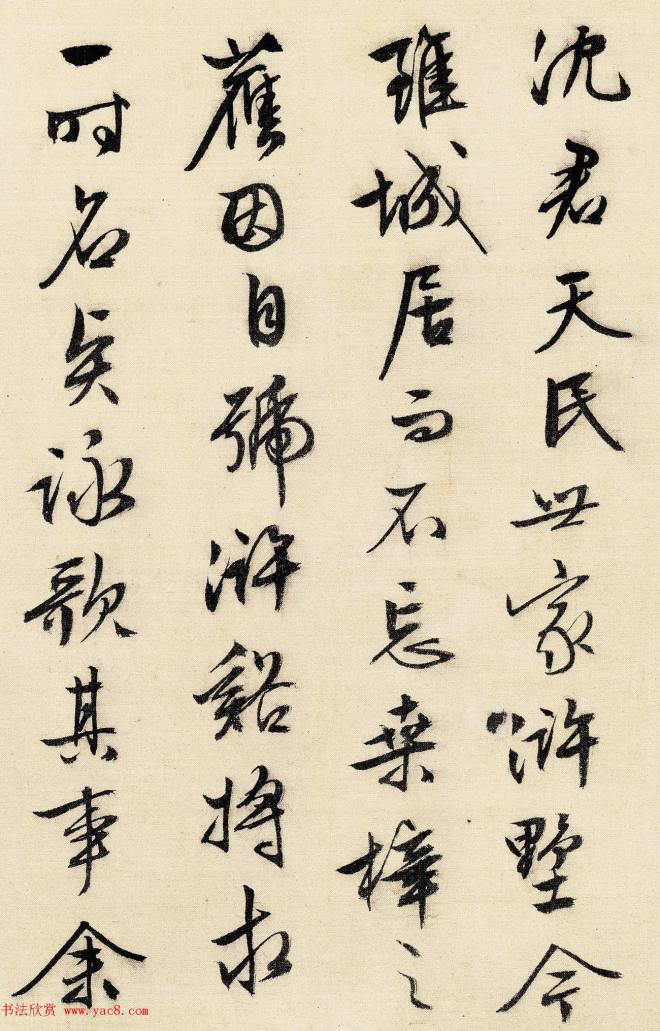 沈君天民世家滸墅今
雖城居而不忘桑梓之
舊因自號滸谿將求
一时名賢詠歌其事余
书法欣赏 www.yac8.com